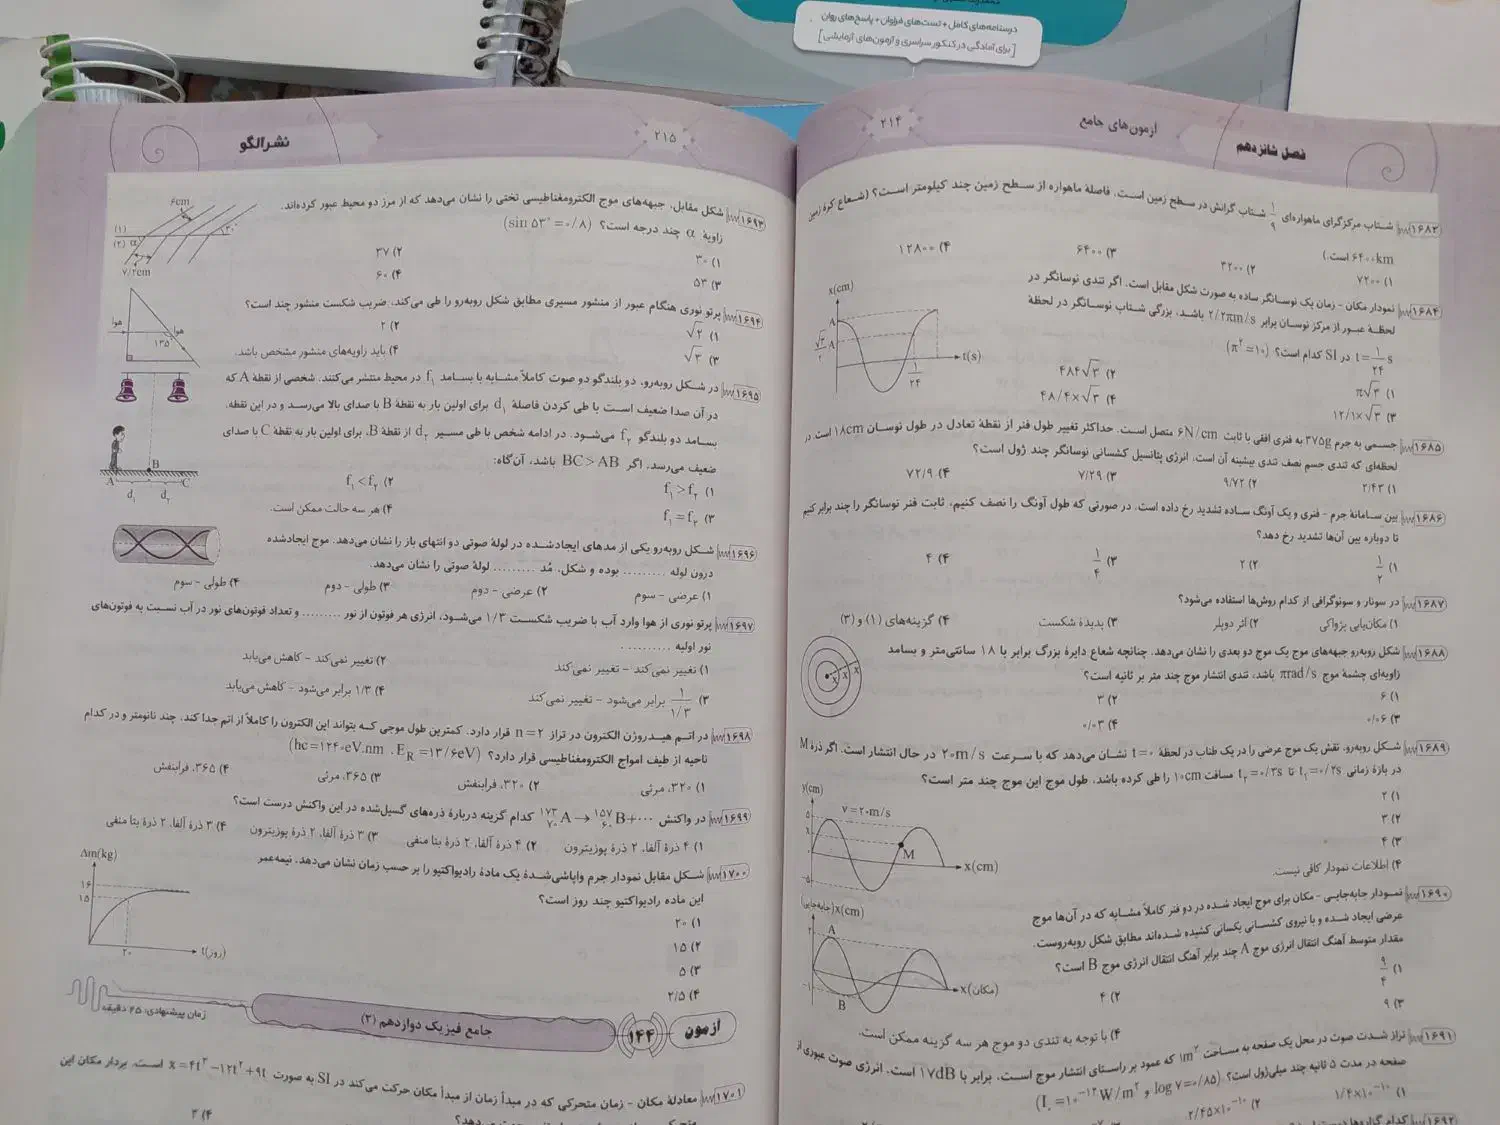 درسنامه‌های کامل + تست‌های فراوان + پاسخ‌های روان
[برای آمادگی در کنکور سراسری و آزمون‌های آزمایشی]
فصل شانزدهم
آزمون‌های جامع
۲۱۴
۱۶۸۳ شتاب مرکزگرای ماهواره‌ای ۱/۹ شتاب گرانش در سطح زمین است. فاصلهٔ ماهواره از سطح زمین چند کیلومتر است؟ (شعاع کرهٔ زمین
۶۴۰۰km است.)
۱) ۷۲۰۰ ۲) ۳۲۰۰ ۳) ۶۴۰۰ ۴) ۱۲۸۰۰
۱۶۸۴ نمودار مکان - زمان یک نوسانگر ساده به صورت شکل مقابل است. اگر تندی نوسانگر در
لحظهٔ عبور از مرکز نوسان برابر ۲/۲πm/s باشد، بزرگی شتاب نوسانگر در لحظهٔ
t=۱/۲۴ s در SI کدام است؟ (π²=۱۰)
۱) π√۳ ۲) ۴۸۴√۳
۳) ۱۲/۱×√۳ ۴) ۴۸/۴×√۳
x(cm)
A
√۳/۲ A
۱/۲۴
t(s)
۱۶۸۵ جسمی به جرم ۳۷۵g به فنری افقی با ثابت ۶N/cm متصل است. حداکثر تغییر طول فنر از نقطهٔ تعادل در طول نوسان ۱۸cm است. در
لحظه‌ای که تندی جسم نصف تندی بیشینه آن است، انرژی پتانسیل کشسانی نوسانگر چند ژول است؟
۱) ۲/۴۳ ۲) ۹/۷۲ ۳) ۷/۲۹ ۴) ۷۲/۹
۱۶۸۶ بین سامانهٔ جرم - فنری و یک آونگ ساده تشدید رخ داده است. در صورتی که طول آونگ را نصف کنیم، ثابت فنر نوسانگر را چند برابر کنیم
تا دوباره بین آن‌ها تشدید رخ دهد؟
۱) ۱/۲ ۲) ۲ ۳) ۱/۴ ۴) ۴
۱۶۸۷ در سونار و سونوگرافی از کدام روش‌ها استفاده می‌شود؟
۱) مکان‌یابی پژواکی ۲) اثر دوپلر ۳) پدیدهٔ شکست ۴) گزینه‌های (۱) و (۳)
۱۶۸۸ شکل روبه‌رو جبهه‌های موج یک موج دوبعدی را نشان می‌دهد. چنانچه شعاع دایرهٔ بزرگ برابر با ۱۸ سانتی‌متر و بسامد
زاویه‌ای چشمهٔ موج πrad/s باشد، تندی انتشار موج چند متر بر ثانیه است؟
۱) ۶ ۲) ۳
۳) ۰/۰۶ ۴) ۰/۰۳
x x x
۱۶۸۹ شکل روبه‌رو، نقش یک موج عرضی را در یک طناب در لحظهٔ t=۰ نشان می‌دهد که با سرعت ۲۰m/s در حال انتشار است. اگر ذرهٔ M
در بازهٔ زمانی t₁=۰/۲s تا t₂=۰/۳s مسافت ۱۰cm را طی کرده باشد، طول موج این موج چند متر است؟
۱) ۲
۲) ۳
۳) ۴
۴) اطلاعات نمودار کافی نیست.
y(cm)
۵
v=۲۰m/s
M
x(cm)
-۵
۱۶۹۰ نمودار جابه‌جایی - مکان برای موج ایجاد شده در دو فنر کاملاً مشابه که در آن‌ها موج
عرضی ایجاد شده و با نیروی کشسانی یکسانی کشیده شده‌اند مطابق شکل روبه‌روست.
مقدار متوسط آهنگ انتقال انرژی موج A چند برابر آهنگ انتقال انرژی موج B است؟
۱) ۹/۴ ۲) ۴
۳) ۹
۴) با توجه به تندی دو موج هر سه گزینه ممکن است.
(جابه‌جایی)x(cm)
۲
A
-۱
B
(مکان)x
۱۶۹۱ تراز شدت صوت در محل یک صفحه به مساحت ۱m² که عمود بر راستای انتشار موج است، برابر با ۱۷dB است. انرژی صوت عبوری از
صفحه در مدت ۵ ثانیه چند میلی‌ژول است؟ (log۷=۰/۸۵ و I۰=۱۰⁻¹²W/m²)
۱) ۱/۴×۱۰⁻¹⁰ ۲) ۲/۴۵×۱۰⁻¹⁰
۱۶۹۲
نشر الگو
۲۱۵
۱۶۹۳ شکل مقابل، جبهه‌های موج الکترومغناطیسی تختی را نشان می‌دهد که از مرز دو محیط عبور کرده‌اند.
زاویهٔ α چند درجه است؟ (sin۵۳°=۰/۸)
۱) ۳۰ ۲) ۳۷
۳) ۵۳ ۴) ۶۰
۶cm
(۱)
(۲)
α
۷/۲cm
۱۶۹۴ پرتو نوری هنگام عبور از منشور مسیری مطابق شکل روبه‌رو را طی می‌کند، ضریب شکست منشور چند است؟
۱) √۲ ۲) ۲
۳) √۳ ۴) باید زاویه‌های منشور مشخص باشد.
هوا
هوا
۱۳۵°
۱۶۹۵ در شکل روبه‌رو، دو بلندگو دو صوت کاملاً مشابه با بسامد f₁ در محیط منتشر می‌کنند. شخصی از نقطهٔ A که
در آن صدا ضعیف است با طی کردن فاصلهٔ d₁ برای اولین بار به نقطهٔ B با صدای بالا می‌رسد و در این نقطه،
بسامد دو بلندگو f₂ می‌شود. در ادامه شخص با طی مسیر d₂ از نقطهٔ B، برای اولین بار به نقطهٔ C با صدای
ضعیف می‌رسد. اگر BC>AB باشد، آن‌گاه:
۱) f₁>f₂ ۲) f₁<f₂
۳) f₁=f₂ ۴) هر سه حالت ممکن است.
A B C
d₁ d₂
۱۶۹۶ شکل روبه‌رو یکی از مدهای ایجادشده در لولهٔ صوتی دو انتهای باز را نشان می‌دهد. موج ایجادشده
درون لوله .......... بوده و شکل، مُد .......... لولهٔ صوتی را نشان می‌دهد.
۱) عرضی - سوم ۲) عرضی - دوم ۳) طولی - دوم ۴) طولی - سوم
۱۶۹۷ پرتو نوری از هوا وارد آب با ضریب شکست ۱/۳ می‌شود، انرژی هر فوتون از نور .......... و تعداد فوتون‌های نور در آب نسبت به فوتون‌های
نور اولیه ..........
۱) تغییر نمی‌کند - تغییر نمی‌کند ۲) تغییر نمی‌کند - کاهش می‌یابد
۳) ۱/۱/۳ برابر می‌شود - تغییر نمی‌کند ۴) ۱/۳ برابر می‌شود - کاهش می‌یابد
۱۶۹۸ در اتم هیدروژن الکترون در تراز n=۲ قرار دارد. کمترین طول موجی که بتواند این الکترون را کاملاً از اتم جدا کند، چند نانومتر و در کدام
ناحیه از طیف امواج الکترومغناطیسی قرار دارد؟ (hc=۱۲۴۰eV.nm ، E_R=۱۳/۶eV)
۱) ۳۲۰، مرئی ۲) ۳۲۰، فرابنفش ۳) ۳۶۵، مرئی ۴) ۳۶۵، فرابنفش
۱۶۹۹ در واکنش ¹⁷³₇₀A → ¹⁵⁷₆₀B+... کدام گزینه دربارهٔ ذره‌های گسیل‌شده در این واکنش درست است؟
۱) ۴ ذرهٔ آلفا، ۲ ذرهٔ پوزیترون ۲) ۴ ذرهٔ آلفا، ۲ ذرهٔ بتا منفی ۳) ۳ ذرهٔ آلفا، ۲ ذرهٔ پوزیترون ۴) ۳ ذرهٔ آلفا، ۲ ذرهٔ بتا منفی
۱۷۰۰ شکل مقابل نمودار جرم واپاشی‌شدهٔ یک مادهٔ رادیواکتیو را بر حسب زمان نشان می‌دهد. نیمه‌عمر
این ماده رادیواکتیو چند روز است؟
۱) ۲۰
۲) ۱۵
۳) ۵
۴) ۲/۵
Δm(kg)
۱۶
۱۵
۲۰
t(روز)
آزمون ۱۴۴
جامع فیزیک دوازدهم (۲)
زمان پیشنهادی: ۲۵ دقیقه
۱۷۰۱ معادلهٔ مکان - زمان متحرکی که در مبدأ زمان از مبدأ مکان حرکت می‌کند در SI به صورت x=۴t³-۱۲t²+۹t است. بردار مکان این
۴) ۳